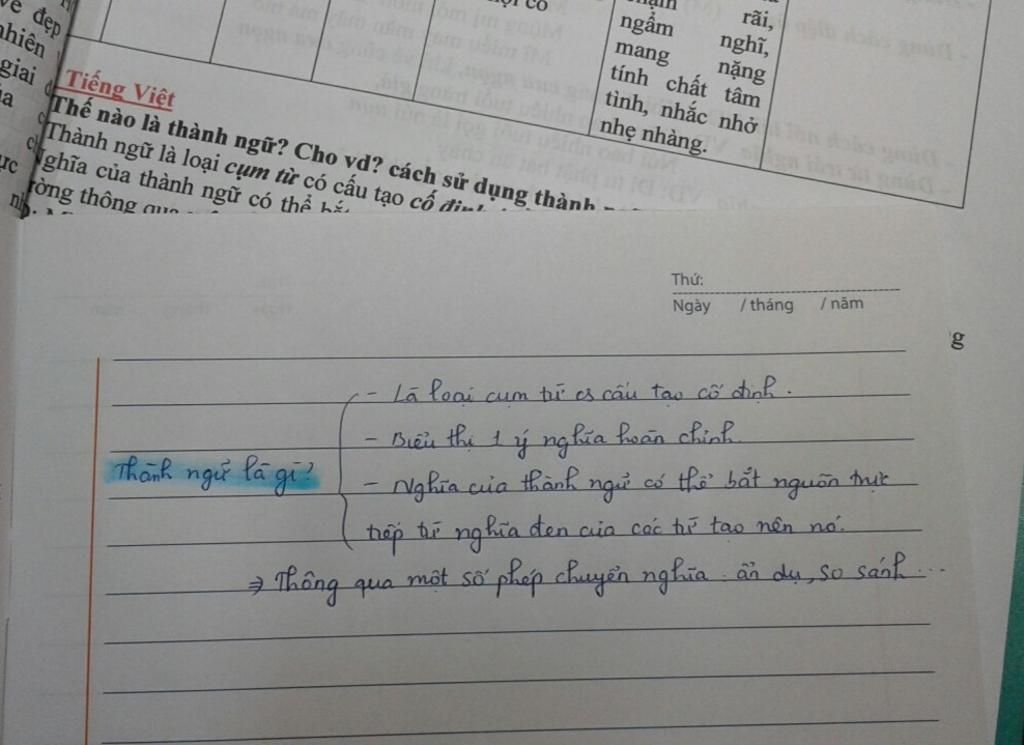 vẻ đẹp
nhiên
giai
rãi,
ngẫm nghĩ,
mang nặng
tính chất tâm
tình, nhắc nhở
nhẹ nhàng.
Tiếng Việt
Thế nào là thành ngữ? Cho vd? cách sử dụng thành
Thành ngữ là loại cụm từ có cấu tạo cố định
Nghĩa của thành ngữ có thể bắt
thông qua
Thứ:
Ngày / tháng / năm
g
- Là loại cụm từ có cấu tạo cố định.
- Biểu thị 1 ý nghĩa hoàn chỉnh.
Thành ngữ là gì?
- Nghĩa của thành ngữ có thể bắt nguồn trực
tiếp từ nghĩa đen của các từ tạo nên nó.
⇒ Thông qua một số phép chuyển nghĩa: ẩn dụ, so sánh ...